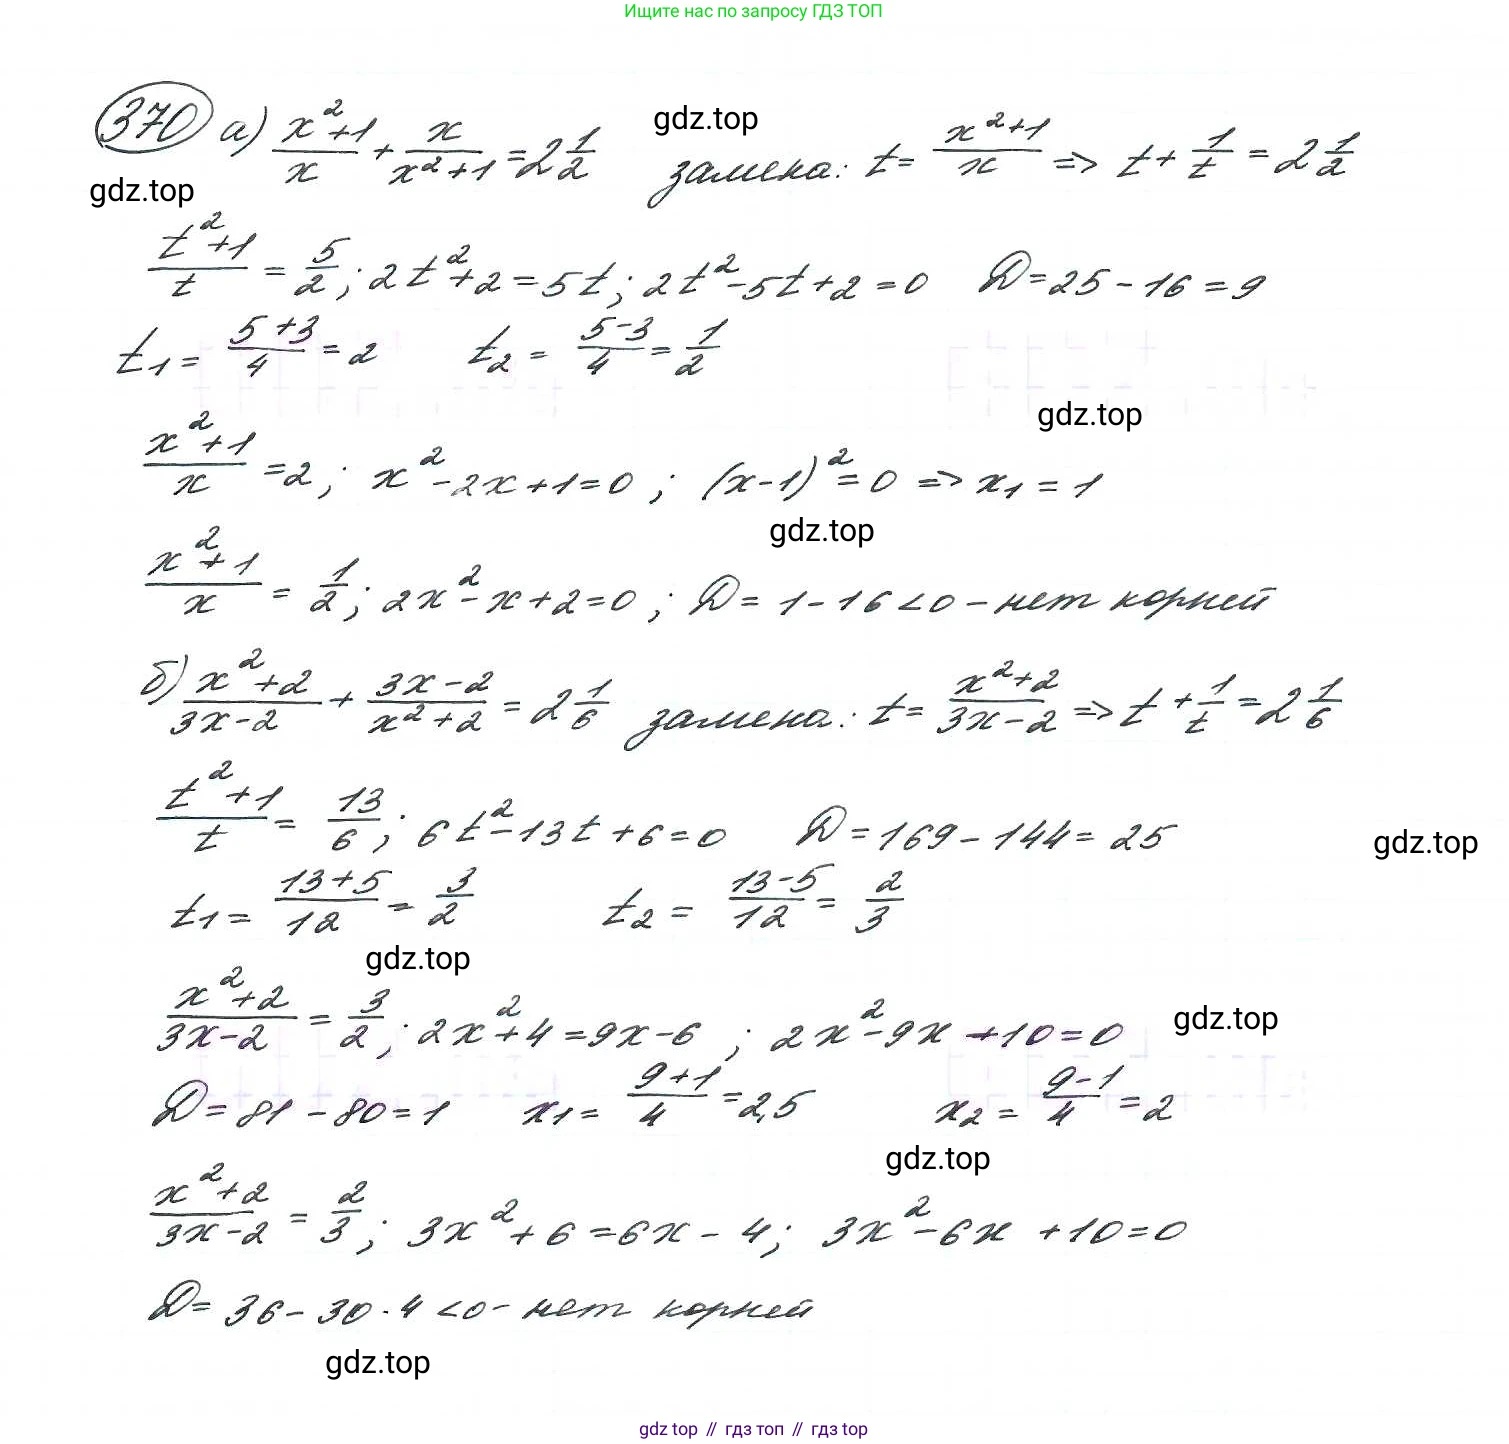 Ищите нас по запросу ГДЗ ТОП
370 а) (x²+1)/x + x/(x²+1) = 2 1/2 замена: t = (x²+1)/x => t + 1/t = 2 1/2
gdz.top
gdz.top
(t²+1)/t = 5/2; 2t²+2=5t; 2t²-5t+2=0 D=25-16=9
t₁ = (5+3)/4 = 2 t₂ = (5-3)/4 = 1/2
gdz.top
(x²+1)/x = 2; x²-2x+1=0; (x-1)²=0 => x₁=1
gdz.top
(x²+1)/x = 1/2; 2x²-x+2=0; D=1-16<0 - нет корней
б) (x²+2)/(3x-2) + (3x-2)/(x²+2) = 2 1/6 замена: t = (x²+2)/(3x-2) => t + 1/t = 2 1/6
(t²+1)/t = 13/6; 6t²-13t+6=0 D=169-144=25
gdz.top
t₁ = (13+5)/12 = 3/2 t₂ = (13-5)/12 = 2/3
gdz.top
(x²+2)/(3x-2) = 3/2; 2x²+4=9x-6; 2x²-9x+10=0
gdz.top
D=81-80=1 x₁ = (9+1)/4 = 2,5 x₂ = (9-1)/4 = 2
gdz.top
(x²+2)/(3x-2) = 2/3; 3x²+6=6x-4; 3x²-6x+10=0
D=36-30·4<0 - нет корней
gdz.top
gdz top // гдз топ // гдз.top